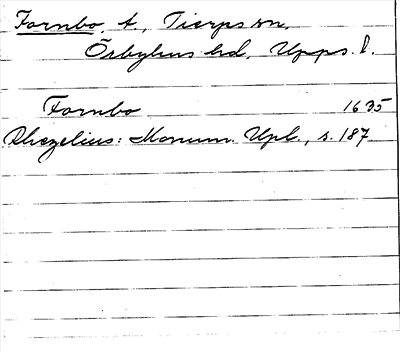 Fornbo, t., Tierps sn,
Örbyhus hd, Upps. l.
Fornbo 1635
Rhezelius: Monum. Upl., s. 187